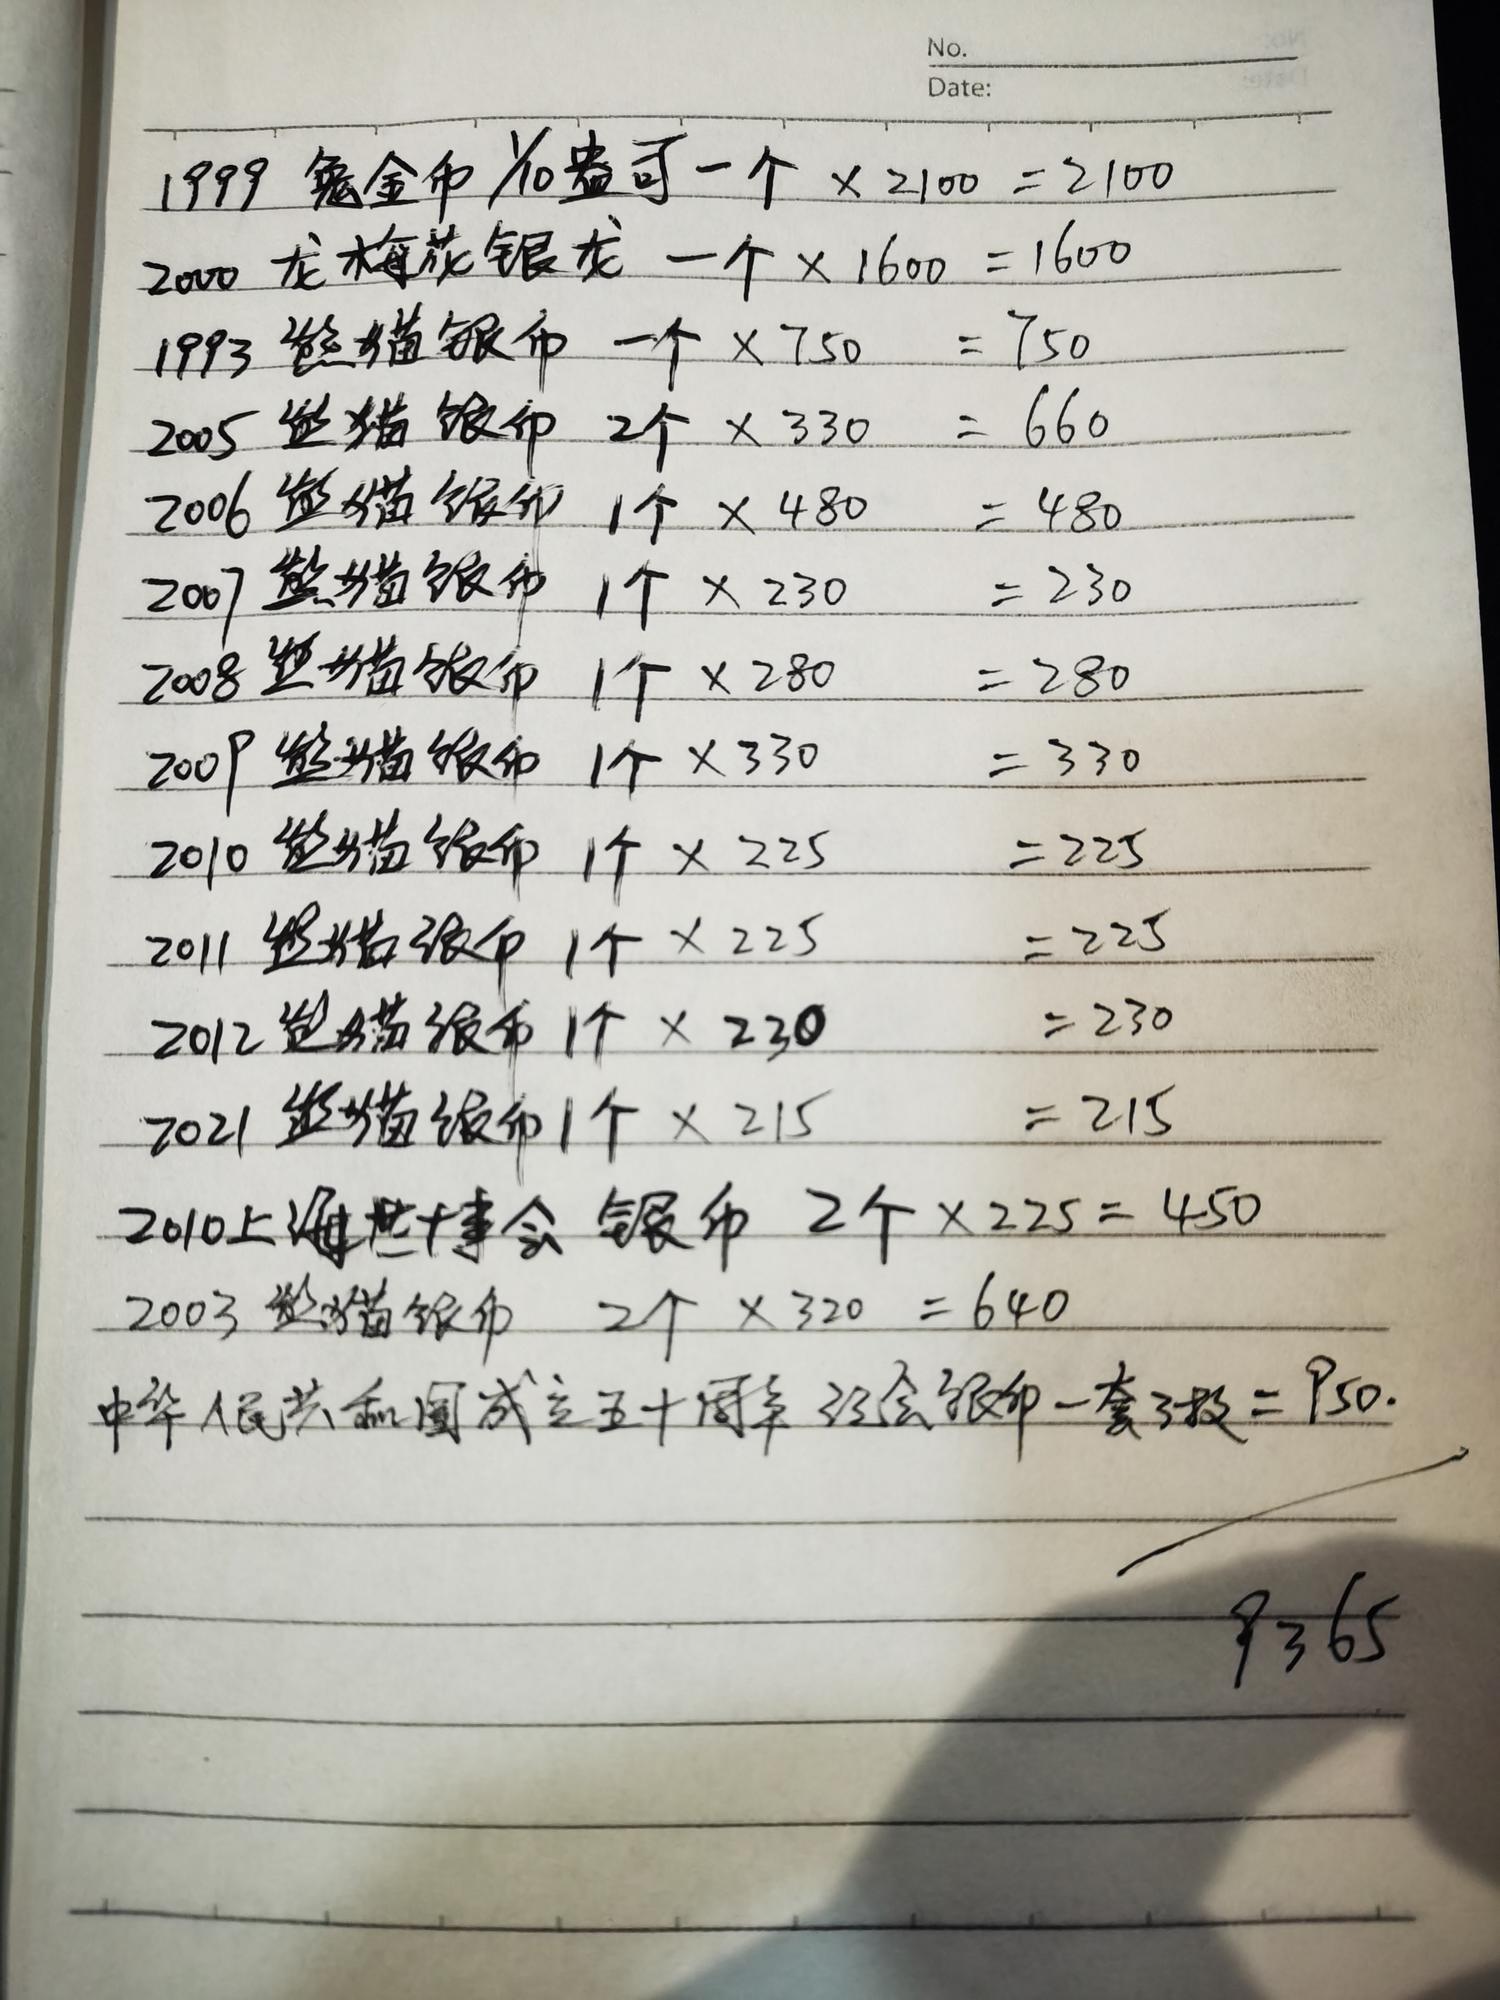 No.
Date:
1999 兔金币 1/10盎司 一个 × 2100 = 2100
2000 龙梅花银龙 一个 × 1600 = 1600
1993 熊猫银币 一个 × 750 = 750
2005 熊猫银币 2个 × 330 = 660
2006 熊猫银币 1个 × 480 = 480
2007 熊猫银币 1个 × 230 = 230
2008 熊猫银币 1个 × 280 = 280
2009 熊猫银币 1个 × 330 = 330
2010 熊猫银币 1个 × 225 = 225
2011 熊猫银币 1个 × 225 = 225
2012 熊猫银币 1个 × 230 = 230
2021 熊猫银币 1个 × 215 = 215
2010上海世博会 银币 2个 × 225 = 450
2003 熊猫银币 2个 × 320 = 640
中华人民共和国成立五十周年纪念银币一套3枚 = 950.
9365